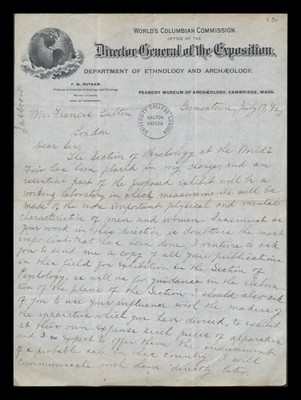 WORLD'S COLUMBIAN COMMISSION
OFFICE OF THE
Director-General of the Exposition,
DEPARTMENT OF ETHNOLOGY AND ARCHÆOLOGY,
F. W. PUTNAM,
PEABODY MUSEUM OF ARCHÆOLOGY, CAMBRIDGE, MASS.
GALTON
PAPERS
Mr. Francis Galton
London
Dear Sir,
The Section of Psychology at the World's
Fair has been placed in my charge and an
essential part of the proposed exhibit will be a
working laboratory in which measurements will be
made of the more important physical and mental
characteristics of men and women. Inasmuch as
your work in this direction is doubtless the most
important that has been done, I venture to ask
you to send me a copy of all your publications
in this field for exhibition in the Section of
Psychology as well as for guidance in the elabora-
tion of the plans of the Section. I should also ask
of you to use your influence with the makers of
the apparatus which you have devised, to exhibit
at their own expense such pieces of apparatus
and I expect to offer them the inducement
of a probable sale in this country. I will
communicate with them directly later.